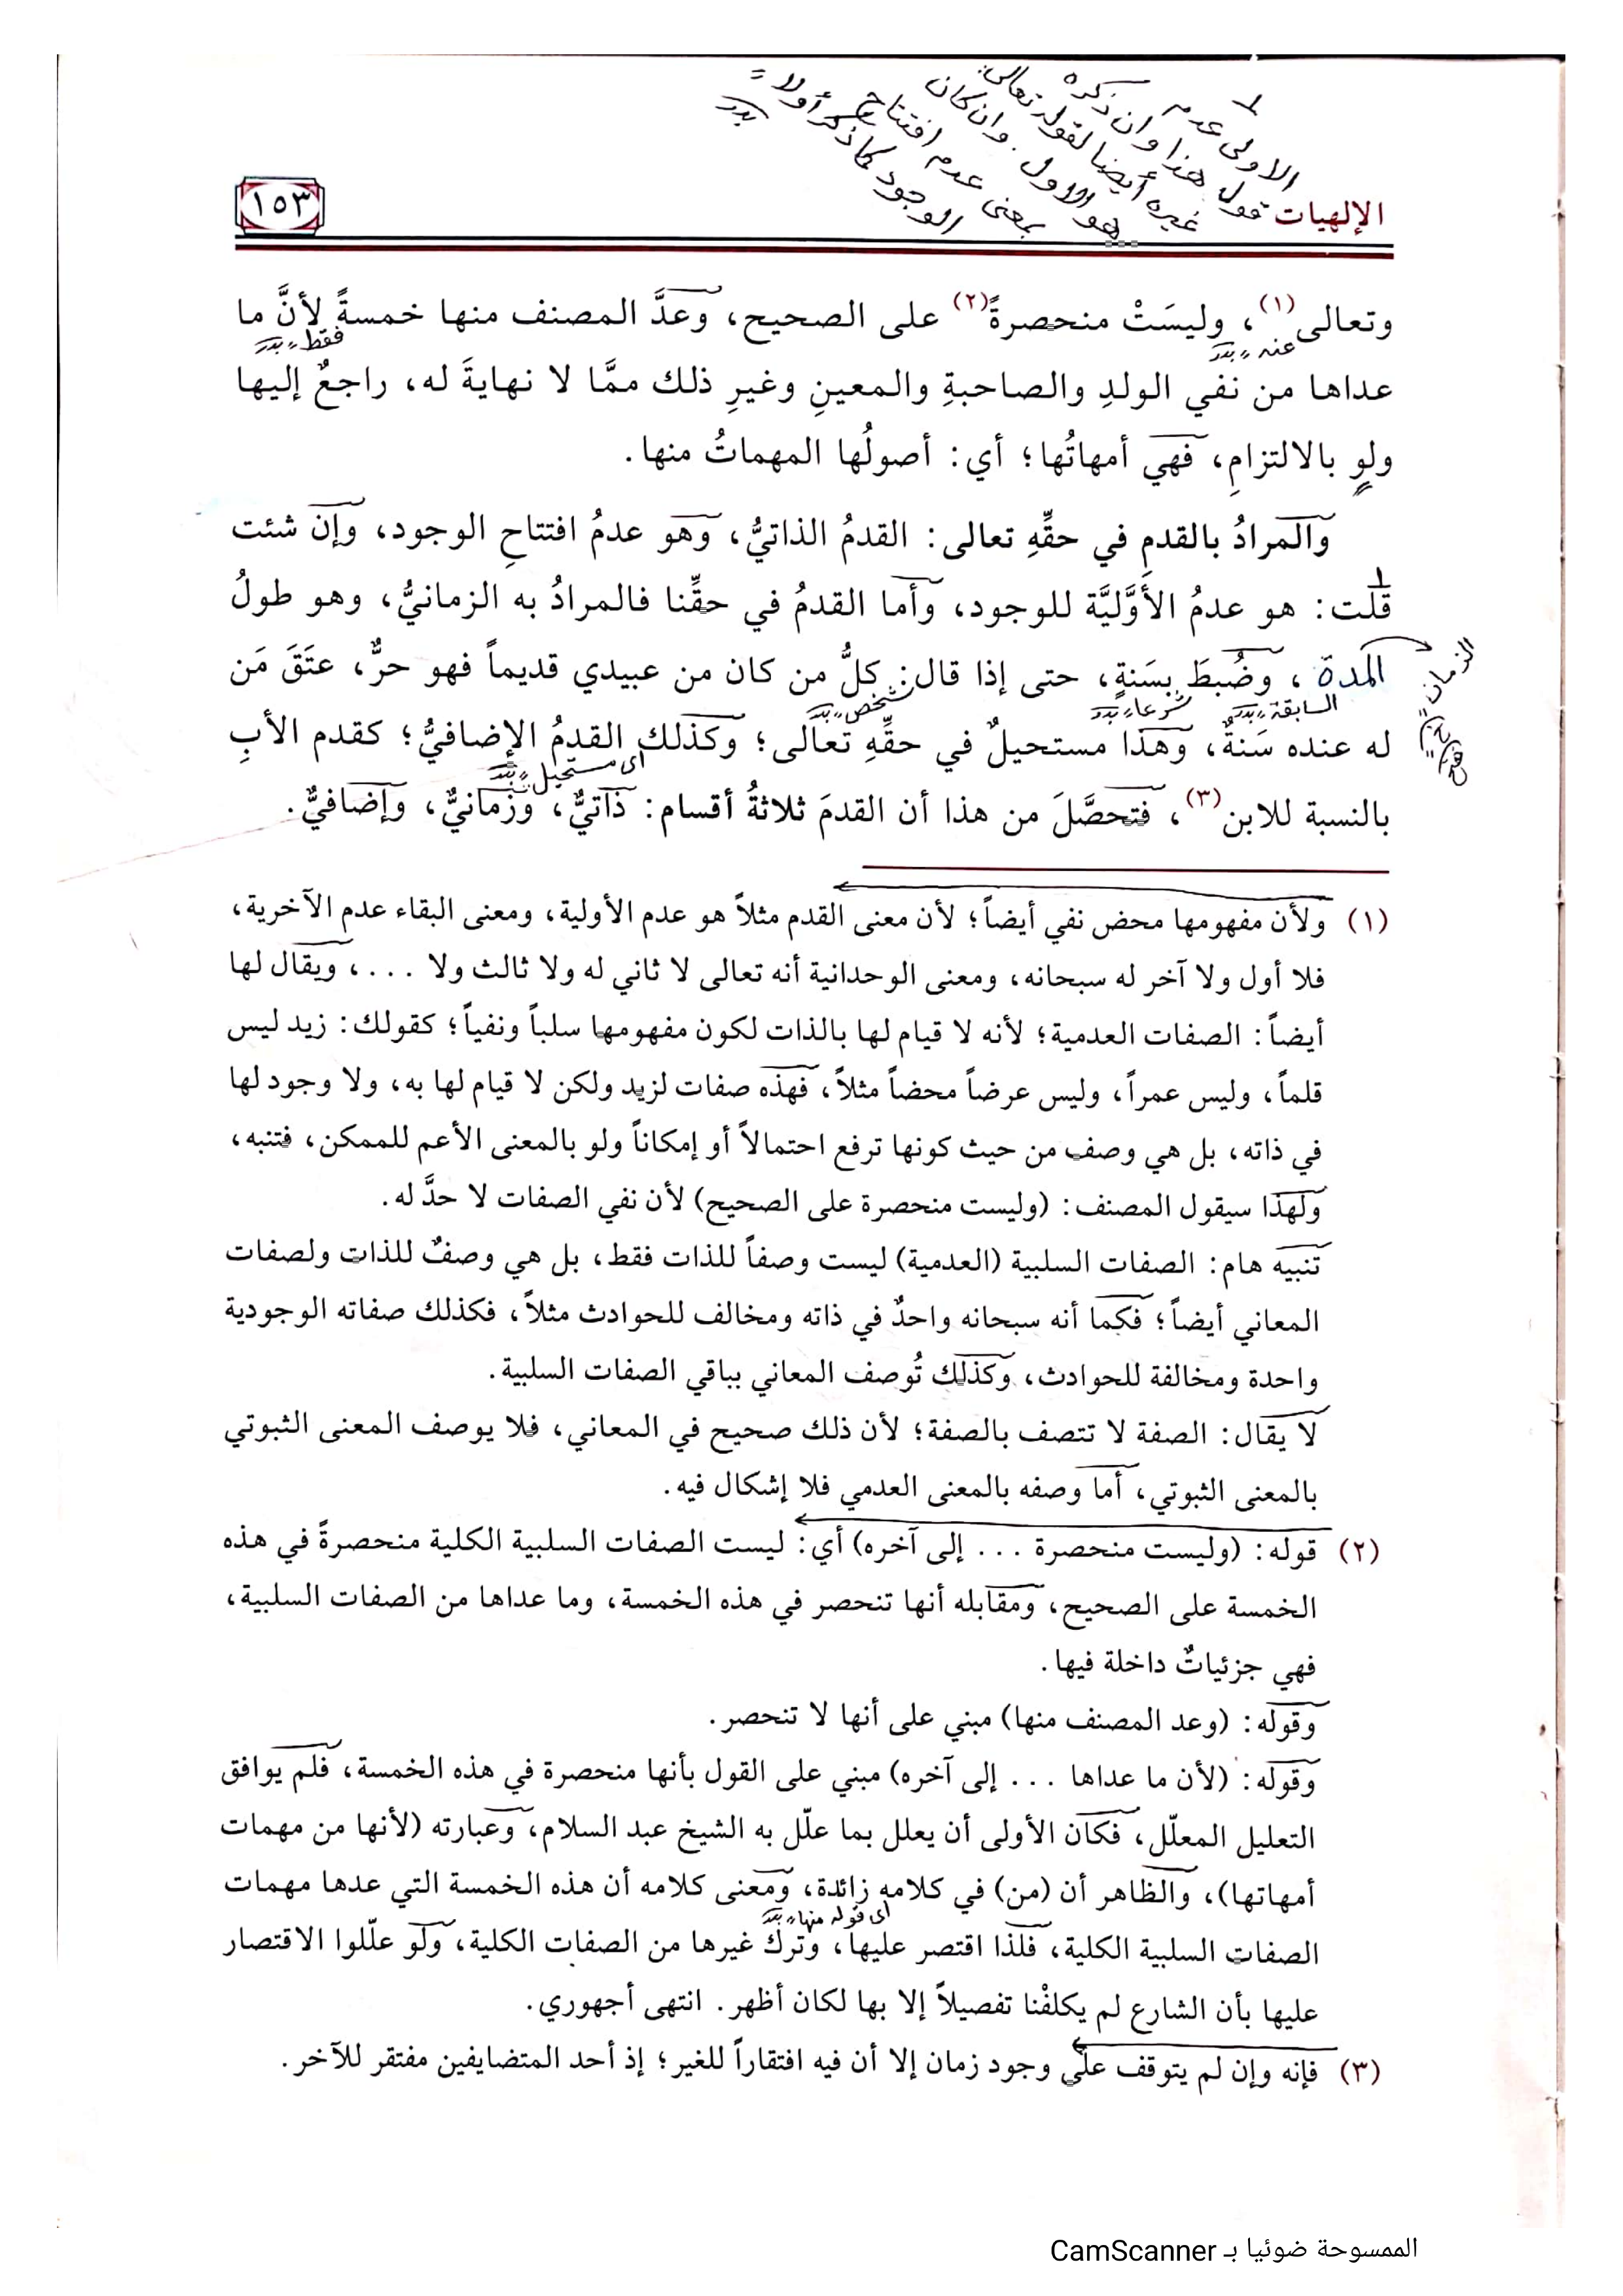 الاولى عدم
قول هذا وان ذكره
غيره أيضا لقوله تعالى:
هو الاول. وان كان
بمعنى عدم افتتاح
الوجود كما ذكر أولا =
بدر
الإلهيات
١٥٣
وتعالى(١)، وليسَتْ منحصرةً(٢) على الصحيح، وعدَّ المصنف منها خمسةً لأنَّ ما
عنه ,, بدر
فقط ,, بدر
عداها من نفي الولدِ والصاحبةِ والمعينِ وغيرِ ذلك ممَّا لا نهايةَ له، راجعٌ إليها
ولو بالالتزامِ، فهي أمهاتُها؛ أي: أصولُها المهماتُ منها.
والمرادُ بالقدمِ في حقِّهِ تعالى: القدمُ الذاتيُّ، وهو عدمُ افتتاحِ الوجود، وإن شئت
قلت: هو عدمُ الأوَّليَّة للوجود، وأما القدمُ في حقِّنا فالمرادُ به الزمانيُّ، وهو طولُ
المدة، وضُبطَ بسَنةٍ، حتى إذا قال: كلُّ من كان من عبيدي قديماً فهو حرٌّ، عتَقَ مَن
الزمان =
السابقة ,, بدر
شرعا ,, بدر
شخص ,, بدر
له عنده سَنةٌ، وهذا مستحيلٌ في حقِّهِ تعالى؛ وكذلك القدمُ الإضافيُّ؛ كقدم الأبِ
اى مستحيل ,, بدر
بالنسبة للابن(٣)، فتحصَّلَ من هذا أن القدمَ ثلاثةُ أقسام: ذاتيٌّ، وزمانيٌّ، وإضافيٌّ.
(١) ولأن مفهومها محض نفي أيضاً؛ لأن معنى القدم مثلاً هو عدم الأولية، ومعنى البقاء عدم الآخرية،
فلا أول ولا آخر له سبحانه، ومعنى الوحدانية أنه تعالى لا ثاني له ولا ثالث ولا ...، ويقال لها
أيضاً: الصفات العدمية؛ لأنه لا قيام لها بالذات لكون مفهومها سلباً ونفياً؛ كقولك: زيد ليس
قلماً، وليس عمراً، وليس عرضاً محضاً مثلاً، فهذه صفات لزيد ولكن لا قيام لها به، ولا وجود لها
في ذاته، بل هي وصف من حيث كونها ترفع احتمالاً أو إمكاناً ولو بالمعنى الأعم للممكن، فتنبه،
ولهذا سيقول المصنف: (وليست منحصرة على الصحيح) لأن نفي الصفات لا حدَّ له.
تنبيه هام: الصفات السلبية (العدمية) ليست وصفاً للذات فقط، بل هي وصفٌ للذات ولصفات
المعاني أيضاً؛ فكما أنه سبحانه واحدٌ في ذاته ومخالف للحوادث مثلاً، فكذلك صفاته الوجودية
واحدة ومخالفة للحوادث، وكذلك تُوصف المعاني بباقي الصفات السلبية.
لا يقال: الصفة لا تتصف بالصفة؛ لأن ذلك صحيح في المعاني، فلا يوصف المعنى الثبوتي
بالمعنى الثبوتي، أما وصفه بالمعنى العدمي فلا إشكال فيه.
(٢) قوله: (وليست منحصرة ... إلى آخره) أي: ليست الصفات السلبية الكلية منحصرةً في هذه
الخمسة على الصحيح، ومقابله أنها تنحصر في هذه الخمسة، وما عداها من الصفات السلبية،
فهي جزئياتٌ داخلة فيها.
وقوله: (وعد المصنف منها) مبني على أنها لا تنحصر.
وقوله: (لأن ما عداها ... إلى آخره) مبني على القول بأنها منحصرة في هذه الخمسة، فلم يوافق
التعليل المعلّل، فكان الأولى أن يعلل بما علّل به الشيخ عبد السلام، وعبارته (لأنها من مهمات
أمهاتها)، والظاهر أن (من) في كلامه زائدة، ومعنى كلامه أن هذه الخمسة التي عدها مهمات
اى قوله منها ,, بدر
الصفات السلبية الكلية، فلذا اقتصر عليها، وترك غيرها من الصفات الكلية، ولو علّلوا الاقتصار
عليها بأن الشارع لم يكلفْنا تفصيلاً إلا بها لكان أظهر. انتهى أجهوري.
(٣) فإنه وإن لم يتوقف على وجود زمان إلا أن فيه افتقاراً للغير؛ إذ أحد المتضايفين مفتقر للآخر.
الممسوحة ضوئيا بـ CamScanner